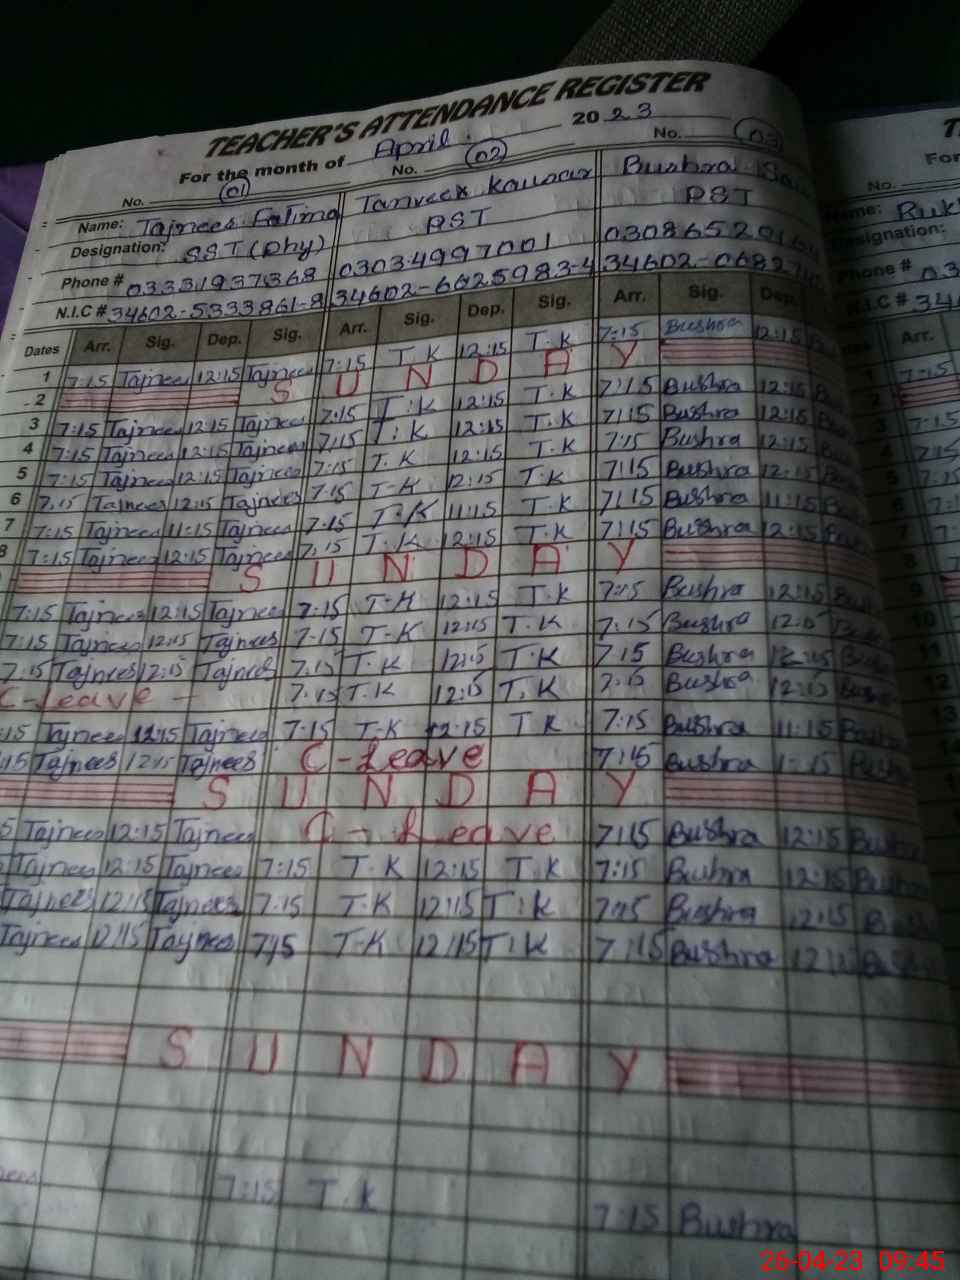 TEACHER'S ATTENDANCE REGISTER
For the month of April. 2023
No. 01 No. 02 No. 03
Name: Tajnees Fatima Tanveer Kausar Bushra
Designation: SST (Phy) PST PST
Phone # 03331937368 03034997001 0308652
N.I.C # 34602-5333861-8 34602-6625983-4 34602-0682
Dates Arr. Sig. Dep. Sig. Arr. Sig. Dep. Sig. Arr. Sig. Dep.
1 7:15 Tajnees 12:15 Tajnees 7:15 T.K 12:15 T.K 7:15 Bushra 12:15
2 S U N D A Y
3 7:15 Tajnees 12:15 Tajnees 7:15 T.K 12:15 T.K 7:15 Bushra 12:15
4 7:15 Tajnees 12:15 Tajnees 7:15 T.K 12:15 T.K 7:15 Bushra 12:15
5 7:15 Tajnees 12:15 Tajnees 7:15 T.K 12:15 T.K 7:15 Bushra 12:15
6 7:15 Tajnees 12:15 Tajnees 7:15 T-K 12:15 T.K 7:15 Bushra 12:15
7 7:15 Tajnees 11:15 Tajnees 7:15 T.K 11:15 T.K 7:15 Bushra 11:15
8 7:15 Tajnees 12:15 Tajnees 7:15 T.K 12:15 T.K 7:15 Bushra 12:15
S U N D A Y
7:15 Tajnees 12:15 Tajnees 7:15 T-K 12:15 T.K 7:15 Bushra 12:15
7:15 Tajnees 12:15 Tajnees 7:15 T-K 12:15 T.K 7:15 Bushra 12:15
7:15 Tajnees 12:15 Tajnees 7:15 T.K 12:15 T.K 7:15 Bushra 12:15
C-Leave - 7:15 T.K 12:15 T.K 7:15 Bushra 12:15
:15 Tajnees 12:15 Tajnees 7:15 T-K 12:15 T K 7:15 Bushra 11:15 Bushra
:15 Tajnees 12:15 Tajnees C-Leave 7:15 Bushra Bushra
S U N D A Y
5 Tajnees 12:15 Tajnees C-Leave 7:15 Bushra 12:15 Bushra
Tajnees 12:15 Tajnees 7:15 T.K 12:15 T.K 7:15 Bushra 12:15 Bushra
Tajnees 12:15 Tajnees 7:15 T.K 12:15 T.K 7:15 Bushra 12:15
Tajnees 12:15 Tajnees 7:15 T-K 12:15 T.K 7:15 Bushra
S U N D A Y
7:15 T.K
7:15 Bushra
No.
Name: Ruk
Designation:
Phone # 03
N.I.C # 346
Arr.
7:15
26-04-23 09:45